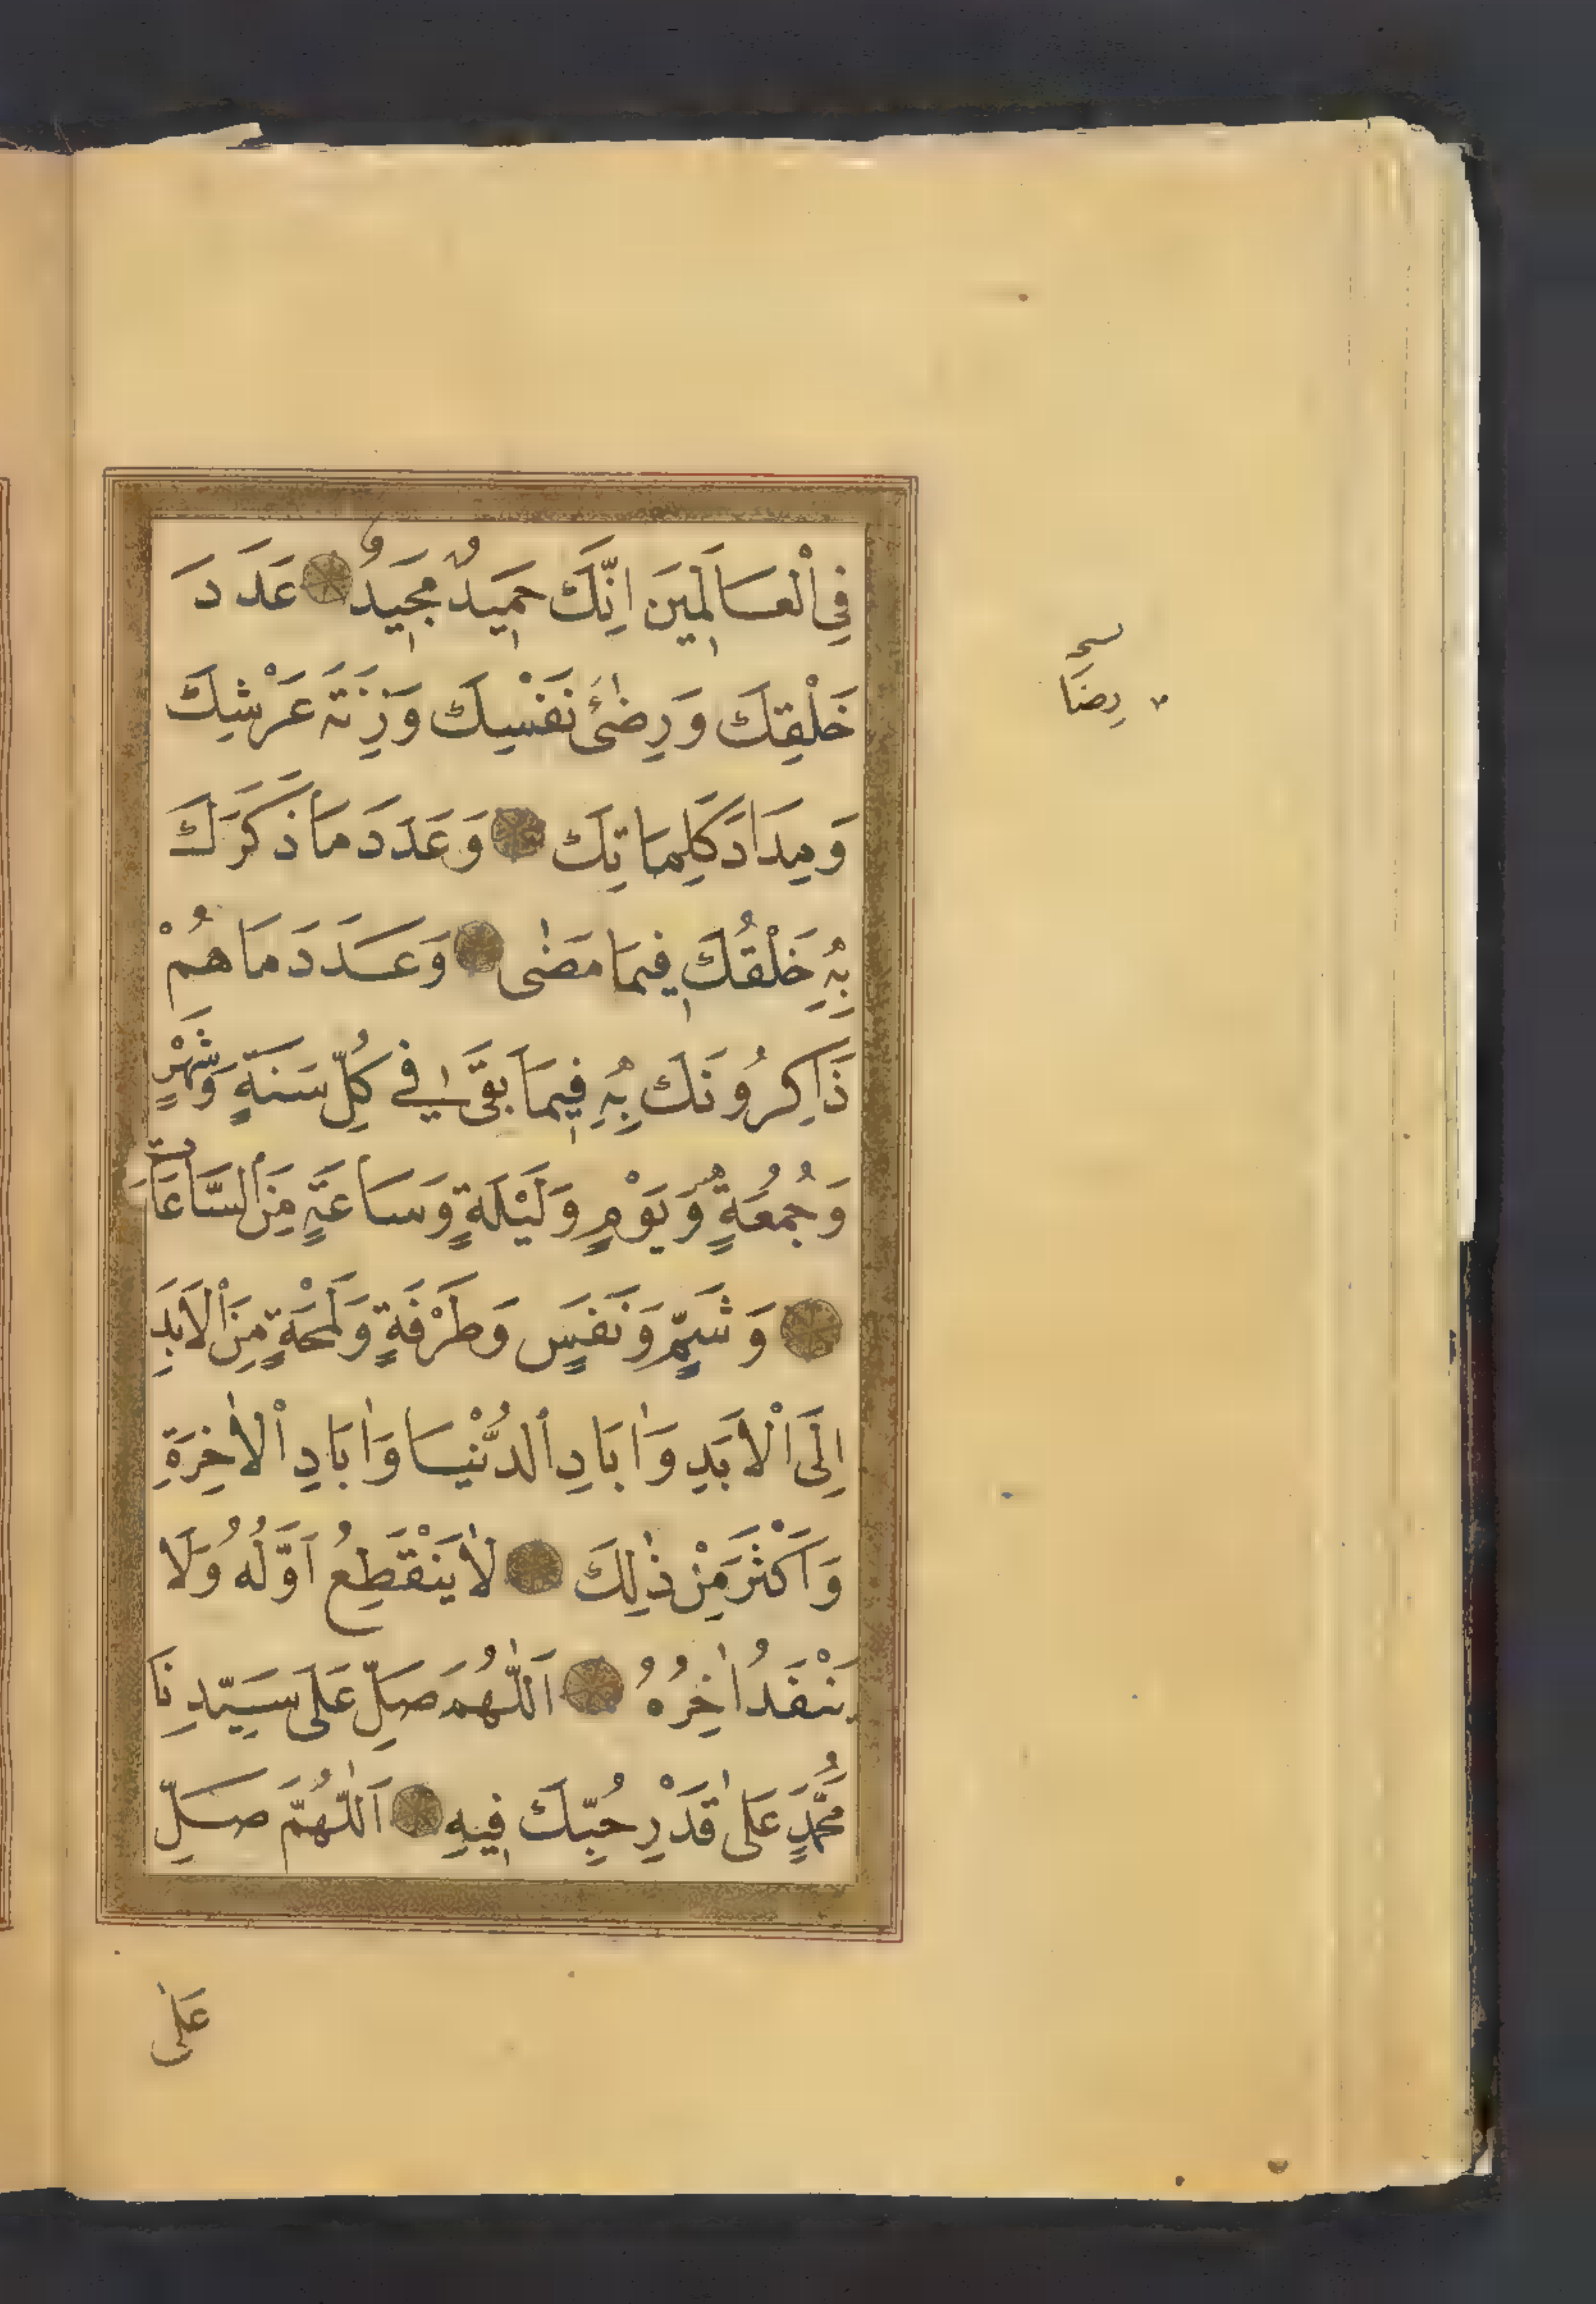 فِي الْعَالَمِينَ اِنَّكَ حَمِيدٌ مَجِيدٌ عَدَدَ
خَلْقِكَ وَرِضٰىَٔ نَفْسِكَ وَزِنَةَ عَرْشِكَ
وَمِدَادَ كَلِمَاتِكَ وَعَدَدَ مَا ذَكَرَكَ
بِهِ خَلْقُكَ فِيمَا مَضٰى وَعَدَدَ مَاهُمْ
ذَاكِرُونَكَ بِهِ فِيمَا بَقَىَ فِي كُلِّ سَنَةٍ وَشَهْرٍ
وَجُمُعَةٍ وَيَوْمٍ وَلَيْلَةٍ وَسَاعَةٍ مِنَ السَّاعَاتِ
وَشَمٍّ وَنَفَسٍ وَطَرْفَةٍ وَلَمْحَةٍ مِنَ الْاَبَدِ
اِلَى الْاَبَدِ وَاٰبَادِ الدُّنْيَا وَاٰبَادِ الْاٰخِرَةِ
وَاَكْثَرَ مِنْ ذٰلِكَ لَا يَنْقَطِعُ اَوَّلُهُ وَلَا
يَنْفَدُ اٰخِرُهُ اَللّٰهُمَّ صَلِّ عَلَى سَيِّدِنَا
مُحَمَّدٍ عَلٰى قَدْرِ حُبِّكَ فِيهِ اَللّٰهُمَّ صَلِّ
عَلٰى
رِضَا